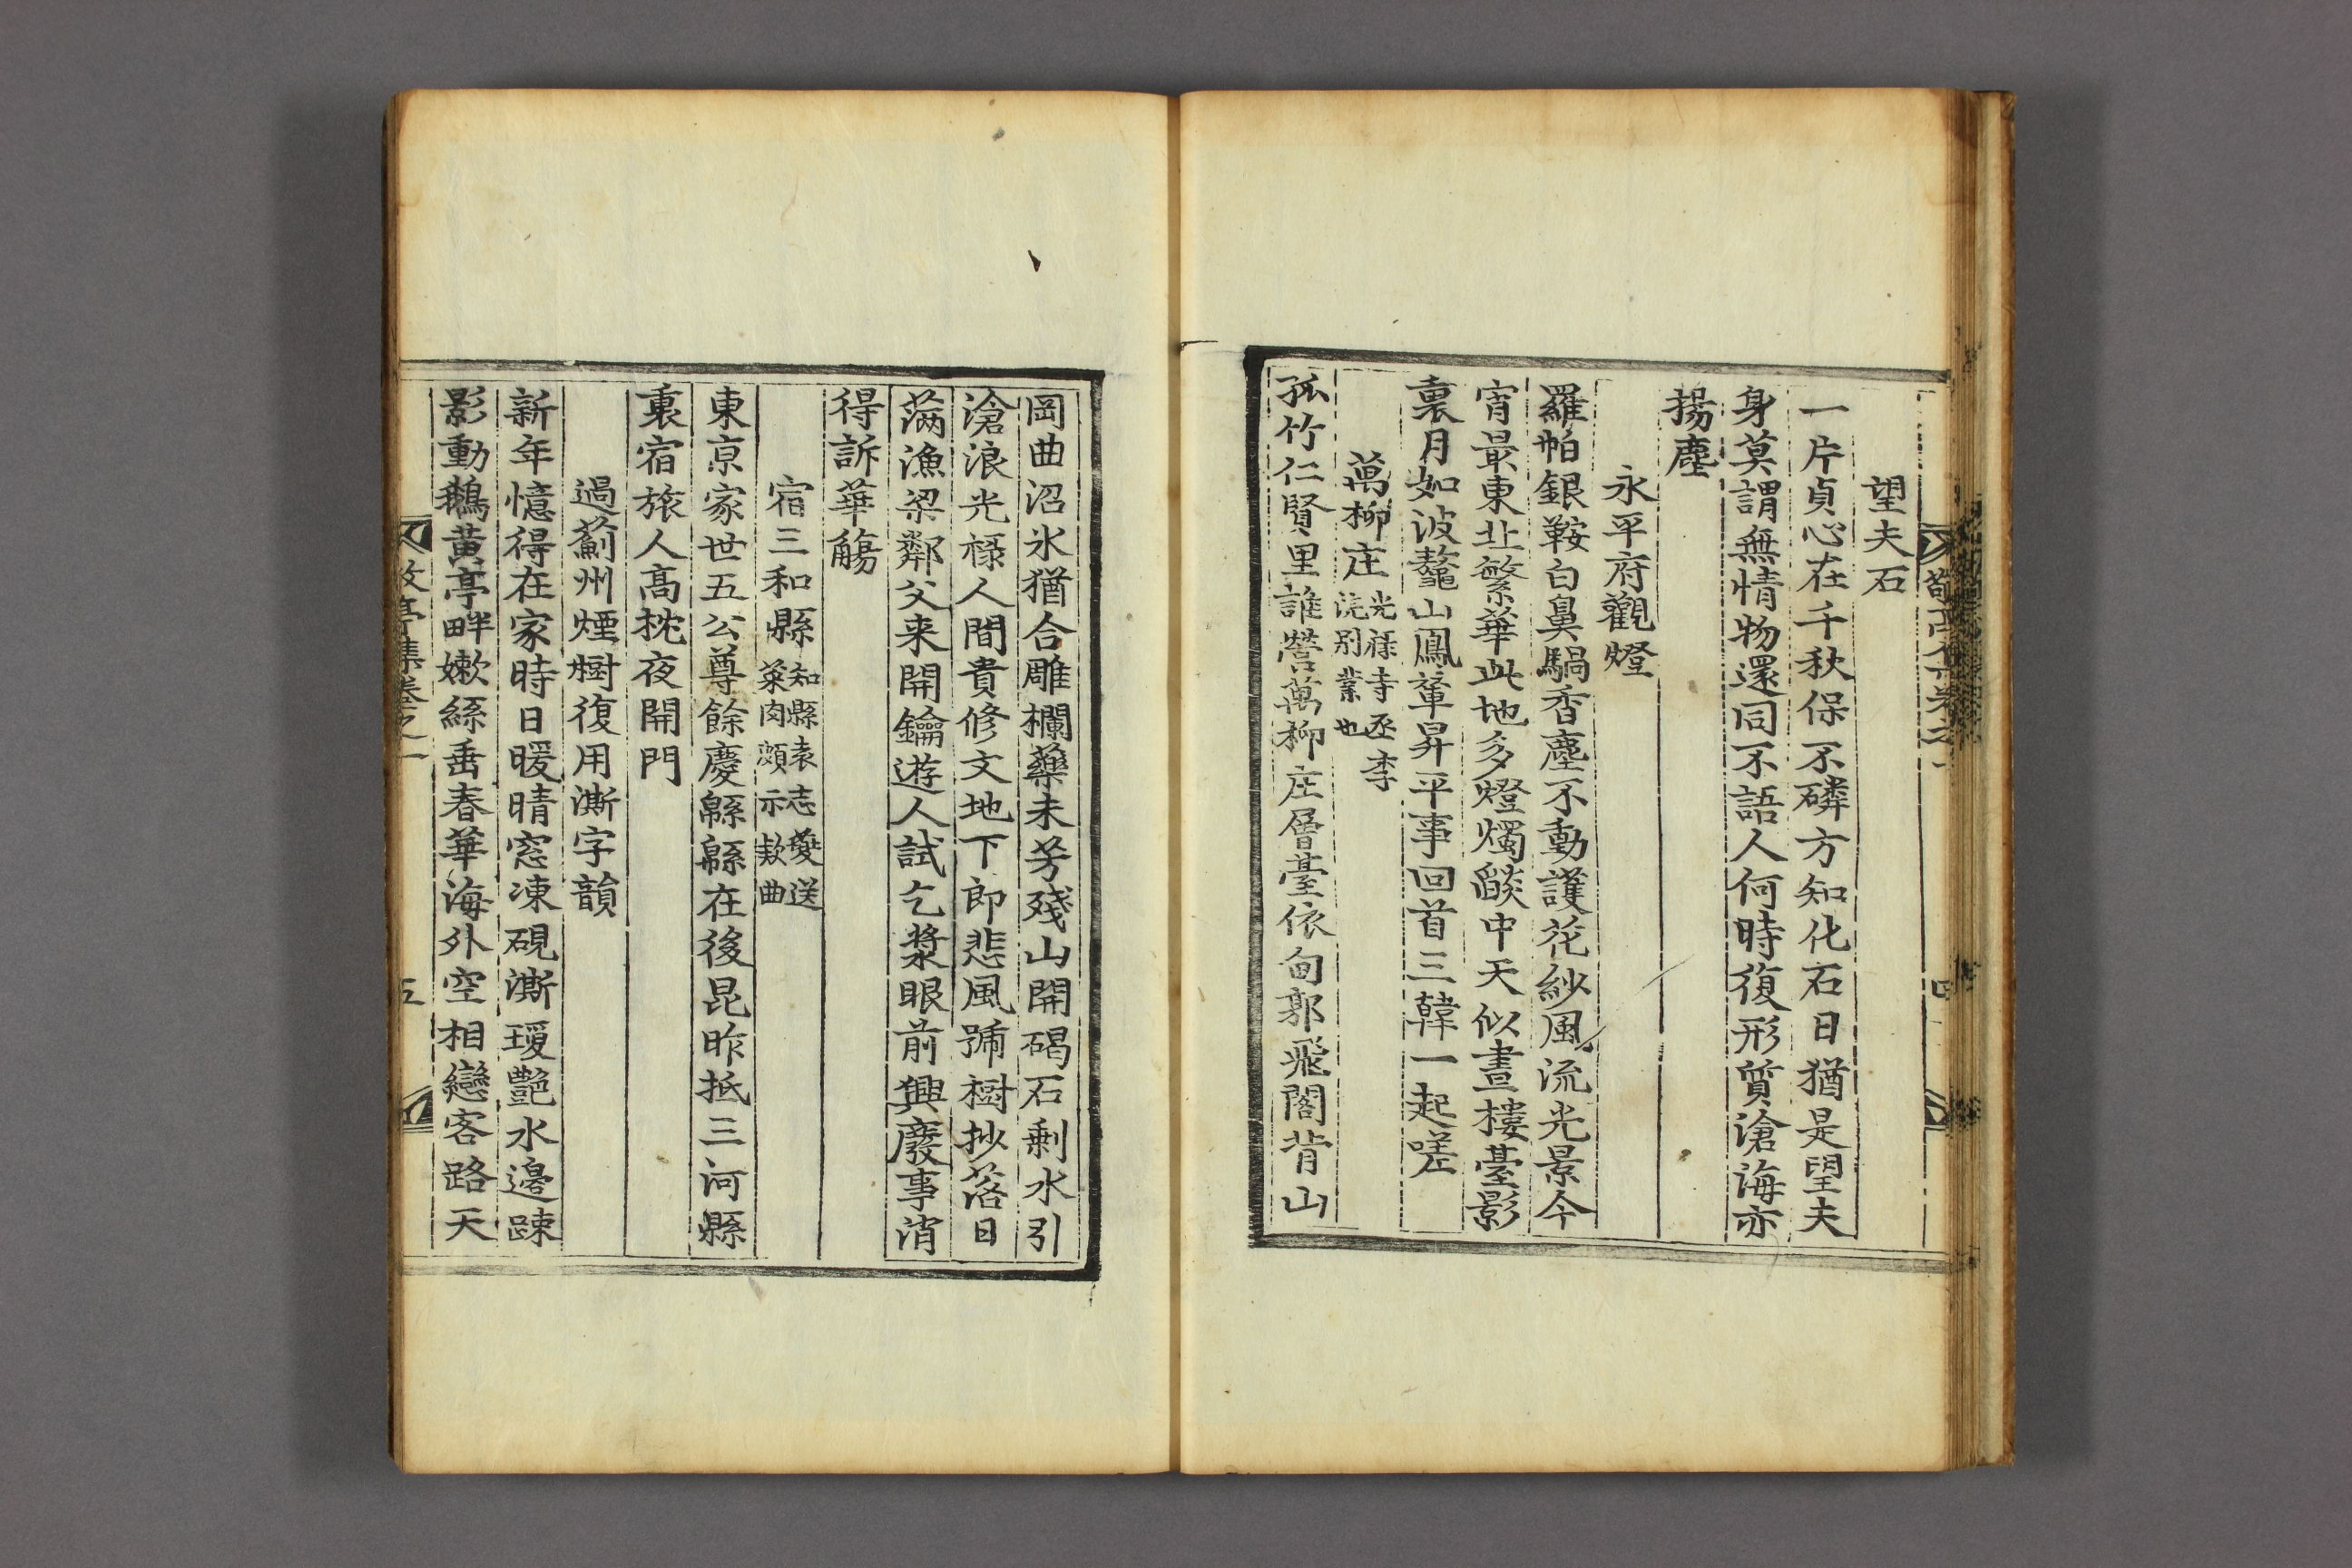 望夫石
一片貞心在千秋保不磷方知化石日猶是望夫
身莫謂無情物還同不語人何時復形質滄海亦
揚塵
永平府觀燈
羅帕銀鞍白鼻騧香塵不動護花紗風流光景今
宵最東北繁華此地多燈燭燄中天似晝樓臺影
裏月如波鼇山鳳輦昇平事回首三韓一起嗟
萬柳庄光祿寺丞李浣別業也
孤竹仁賢里誰營萬柳庄層臺依甸郭飛閣背山
岡曲沼氷猶合雕欄藥未芳殘山開碣石剩水引
滄浪光祿人間貴修文地下郎悲風號樹抄落日
滿漁梁鄰父来開鑰遊人試乞漿眼前興廢事消
得訴華觴
宿三和縣知縣袁志夔送菜肉頗示款曲
東京家世五公尊餘慶緜緜在後昆昨抵三河縣
裏宿旅人高枕夜開門
過薊州煙樹復用澌字韻
新年憶得在家時日暖晴窓凍硯澌璦艶水邊踈
影動鵝黃亭畔嫩絲垂春華海外空相戀客路天
敬亭集卷之一
五